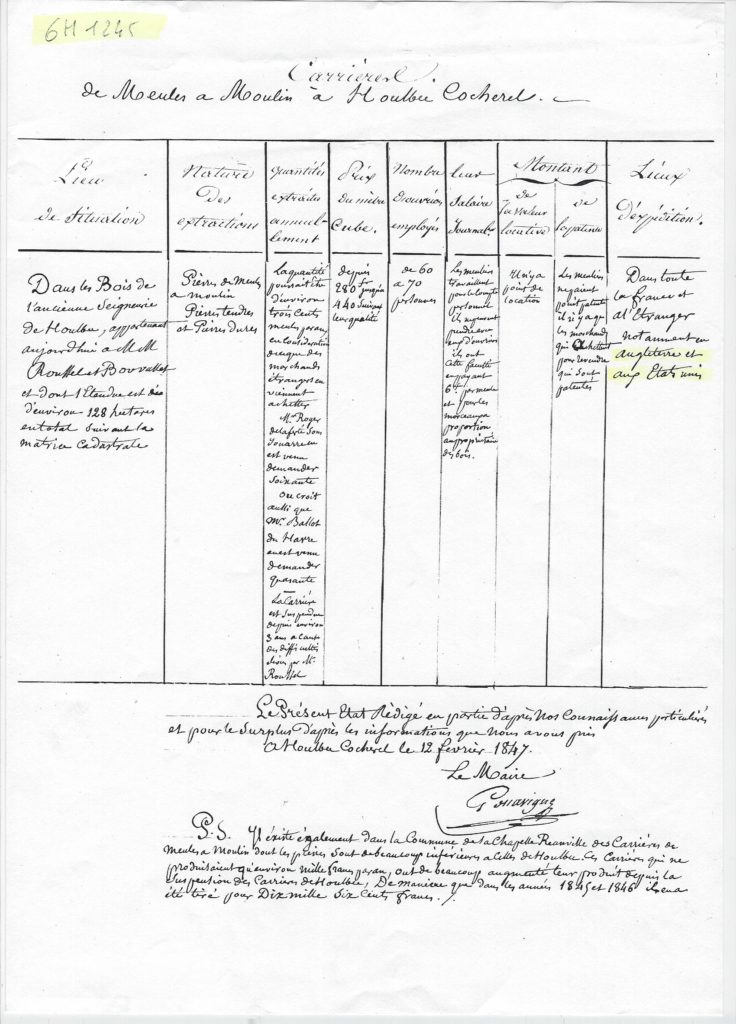 6H 1245
Carrières
de Meules a Moulin à Houlbec Cocherel.
Lieu
de Situation
Nature
Des
extractions
quantités
extraites
annuel-
lement
Prix
du mètre
Cube.
Nombre
d'ouvriers
employés
leur
Salaire
Journalier
Montant
de
la valeur
locative
de
la patente
Lieux
d'éxpédition.
Dans les Bois de
l'ancienne Seigneurie
de Houlbec, appartenant
aujourd'hui a MM
Roussel et Bovvallet
et dont l'Etendue est
d'environ 128 hectares
en total Suivant la
matrice Cadastrale
Pierres de Meules
a moulin
Pierres tendres
et Pierres Dures
La quantité
pourrait être
d'environ
trois Cents
meules par an,
en Considération
de ce que des
marchands
étrangers en
viennent
achetter
Mr. Roger
de la ferté Sous
Jouarre en
est venu
demander
Soixante
On croit
aussi que
Mr. Ballot
du Havre
en est venu
demander
quarante
La Carrière
est Suspendue
depuis environ
3 ans a Cause
des difficultés
par Mr.
Roussel
depuis
280 fr jusqu'a
440 Suivant
leur qualité
de 60
a 70
personnes
Les meuliers
travaillent
pour le Compte
personnel
ils
ils ont
Cette faculté
en payant
6 fr par meule
et pour les
morceaux a
proportion
au propriétaire
des bois.
Il n'y a
point de
location
Les meuliers
ne payent
point patente
il n'y a que
les marchands
qui achettent
pour revendre
qui Sont
patentés
Dans toute
la france et
a l'Etranger
notamment en
angleterre et
aux Etats unis
Le Présent Etat Rédigé en partie d'après Nos Connaissances particulières
et pour le Surplus d'après les informations que Nous avons pris
A Houlbec Cocherel le 12 février 1847.
Le Maire
P.S. Il éxiste également dans la Commune de la Chapelle Reanville des Carrières de
meules a Moulin dont les pierres Sont de beaucoup inférieures a Celles de Houlbec. Ces Carrières qui ne
produisaient qu'environ mille francs par an, ont de beaucoup augmenté leur produit depuis la
Suspension des Carrières de Houlbec, De Manière que dans les années 1845 et 1846 il en a
été tiré pour Dix mille Six Cents francs.